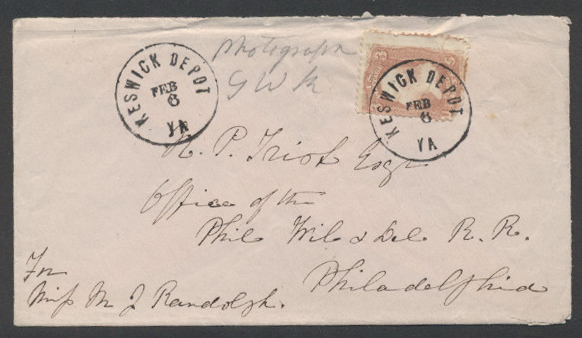 KESWICK DEPOT
FEB
6
VA
Photograph
G W R
3 3
KESWICK DEPOT
FEB
6
VA
N. P. Triot Esqr
Office of the
Phil Wil & Del R. R.
Philadelphia
For
Miss M J Randolph.